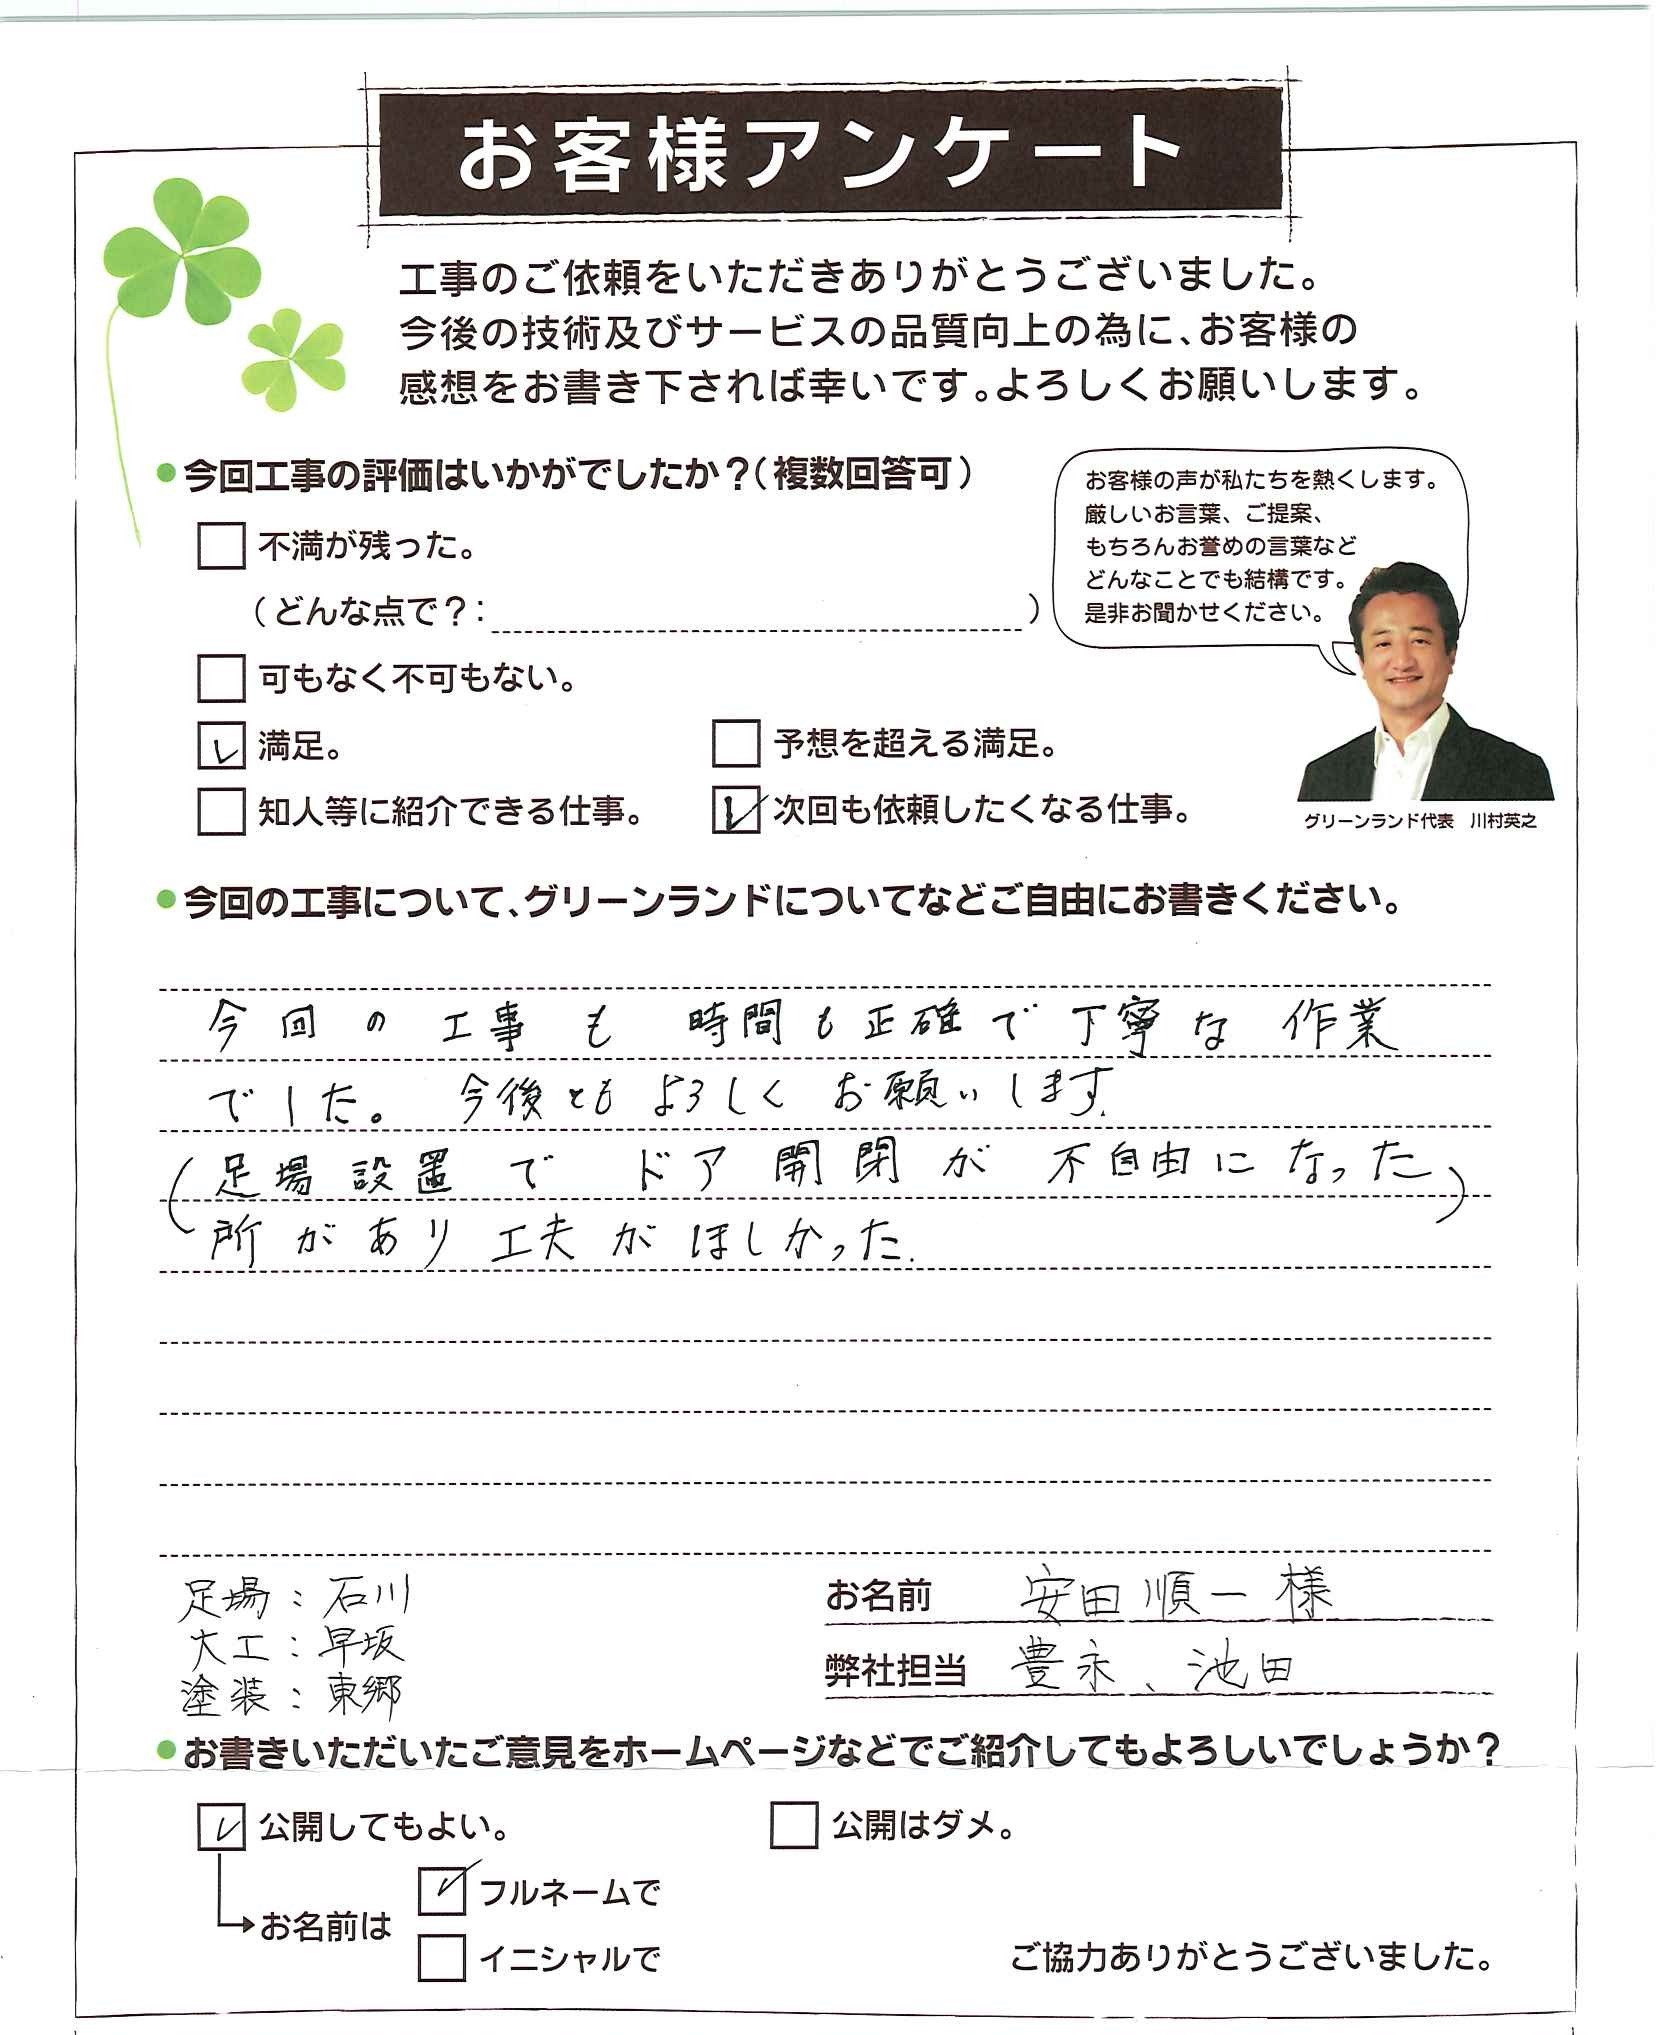 お客様アンケート
工事のご依頼をいただきありがとうございました。
今後の技術及びサービスの品質向上の為に、お客様の
感想をお書き下されば幸いです。よろしくお願いします。
●今回工事の評価はいかがでしたか？（複数回答可）
お客様の声が私たちを熱くします。
厳しいお言葉、ご提案、
もちろんお誉めの言葉など
どんなことでも結構です。
是非お聞かせください。
不満が残った。
（どんな点で？：　）
可もなく不可もない。
満足。
予想を超える満足。
知人等に紹介できる仕事。
次回も依頼したくなる仕事。
グリーンランド代表　川村英之
●今回の工事について、グリーンランドについてなどご自由にお書きください。
今回の工事も 時間も正確で丁寧な 作業
でした。 今後ともよろしく お願いします.
（足場設置で ドア開閉が 不自由になった）
所があり 工夫がほしかった.
足場：石川
大工：早坂
塗装：東郷
お名前　安田順一様
弊社担当　豊永、池田
●お書きいただいたご意見をホームページなどでご紹介してもよろしいでしょうか？
公開してもよい。
公開はダメ。
お名前は
フルネームで
イニシャルで
ご協力ありがとうございました。